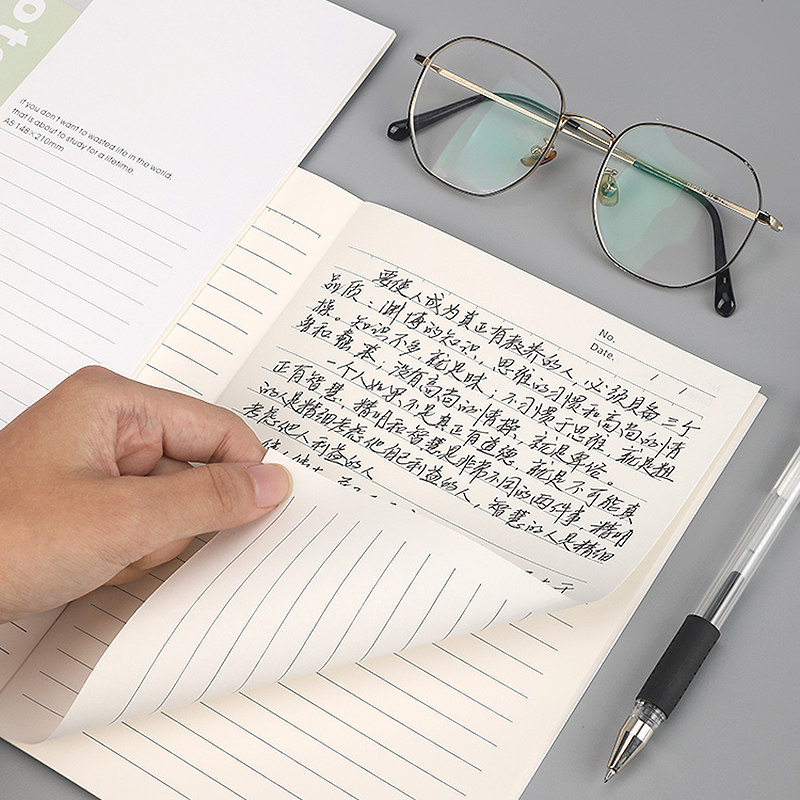 ote
if you don't want to wasted life in the world.
that is about to study for a lifetime.
A5 148×210mm
No.
Date. / /
要使人成为真正有教养的人，必须具备三个
品质：渊博的知识，思维的习惯和高尚的情
操。知识不多，就是昧；不习惯于思维，就是粗
鲁和蠢笨；没有高尚的情操，就是卑俗。
一个人如果不是真正有道德，就是不可能真
正有智慧，精明和智慧是非常不同的两件事，精明
的人是精细考虑他自己利益的人，智慧的人是精细
考虑他人利益的人